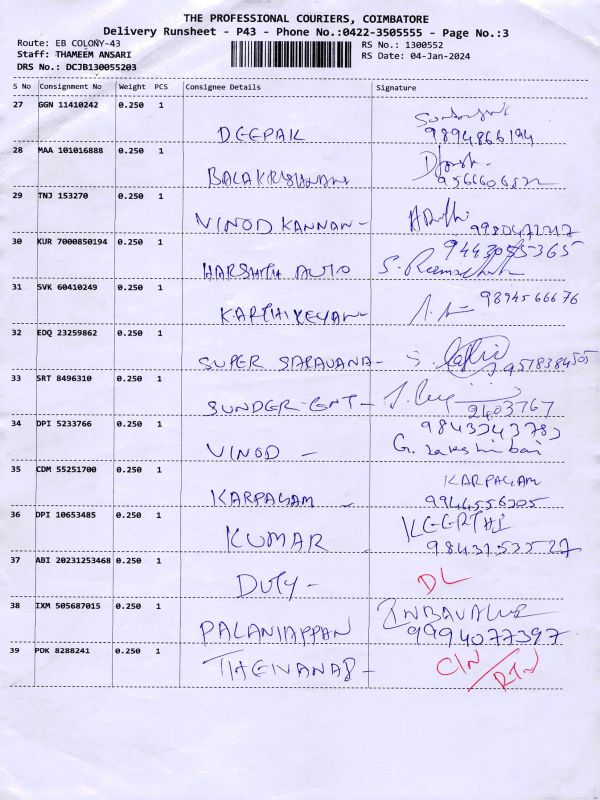 THE PROFESSIONAL COURIERS, COIMBATORE
Delivery Runsheet - P43 - Phone No.:0422-3505555 - Page No.:3
Route: EB COLONY-43
RS No.: 1300552
Staff: THAMEEM ANSARI
RS Date: 04-Jan-2024
DRS No.: DCJB130055203
S No Consignment No Weight PCS Consignee Details Signature
27 GGN 11410242 0.250 1
DEEPAK 9894866194
28 MAA 101016888 0.250 1
BALAKRISHNAN
29 TNJ 153270 0.250 1
VINOD KANNAN -
30 KUR 7000850194 0.250 1
HARSHITH AUTO
31 SVK 60410249 0.250 1
KARTHIKEYAN - 9894566676
32 EDQ 23259862 0.250 1
SUPER SARAVANA - 9578384505
33 SRT 8496310 0.250 1
SUNDER-GMT - 2403767
34 DPI 5233766 0.250 1
9843343783
VINOD - G. Lakshmi bai
35 CDM 55251700 0.250 1
KARPAGAM
KARPAGAM - 9944556205
36 DPI 10653485 0.250 1
KEERTHI
KUMAR - 9843153527
37 ABI 20231253468 0.250 1
DUTY - DL
38 IXM 505687015 0.250 1
PALANIAPPAN 9994077397
39 PDK 8288241 0.250 1
THEIVANAB - CIN/RTN